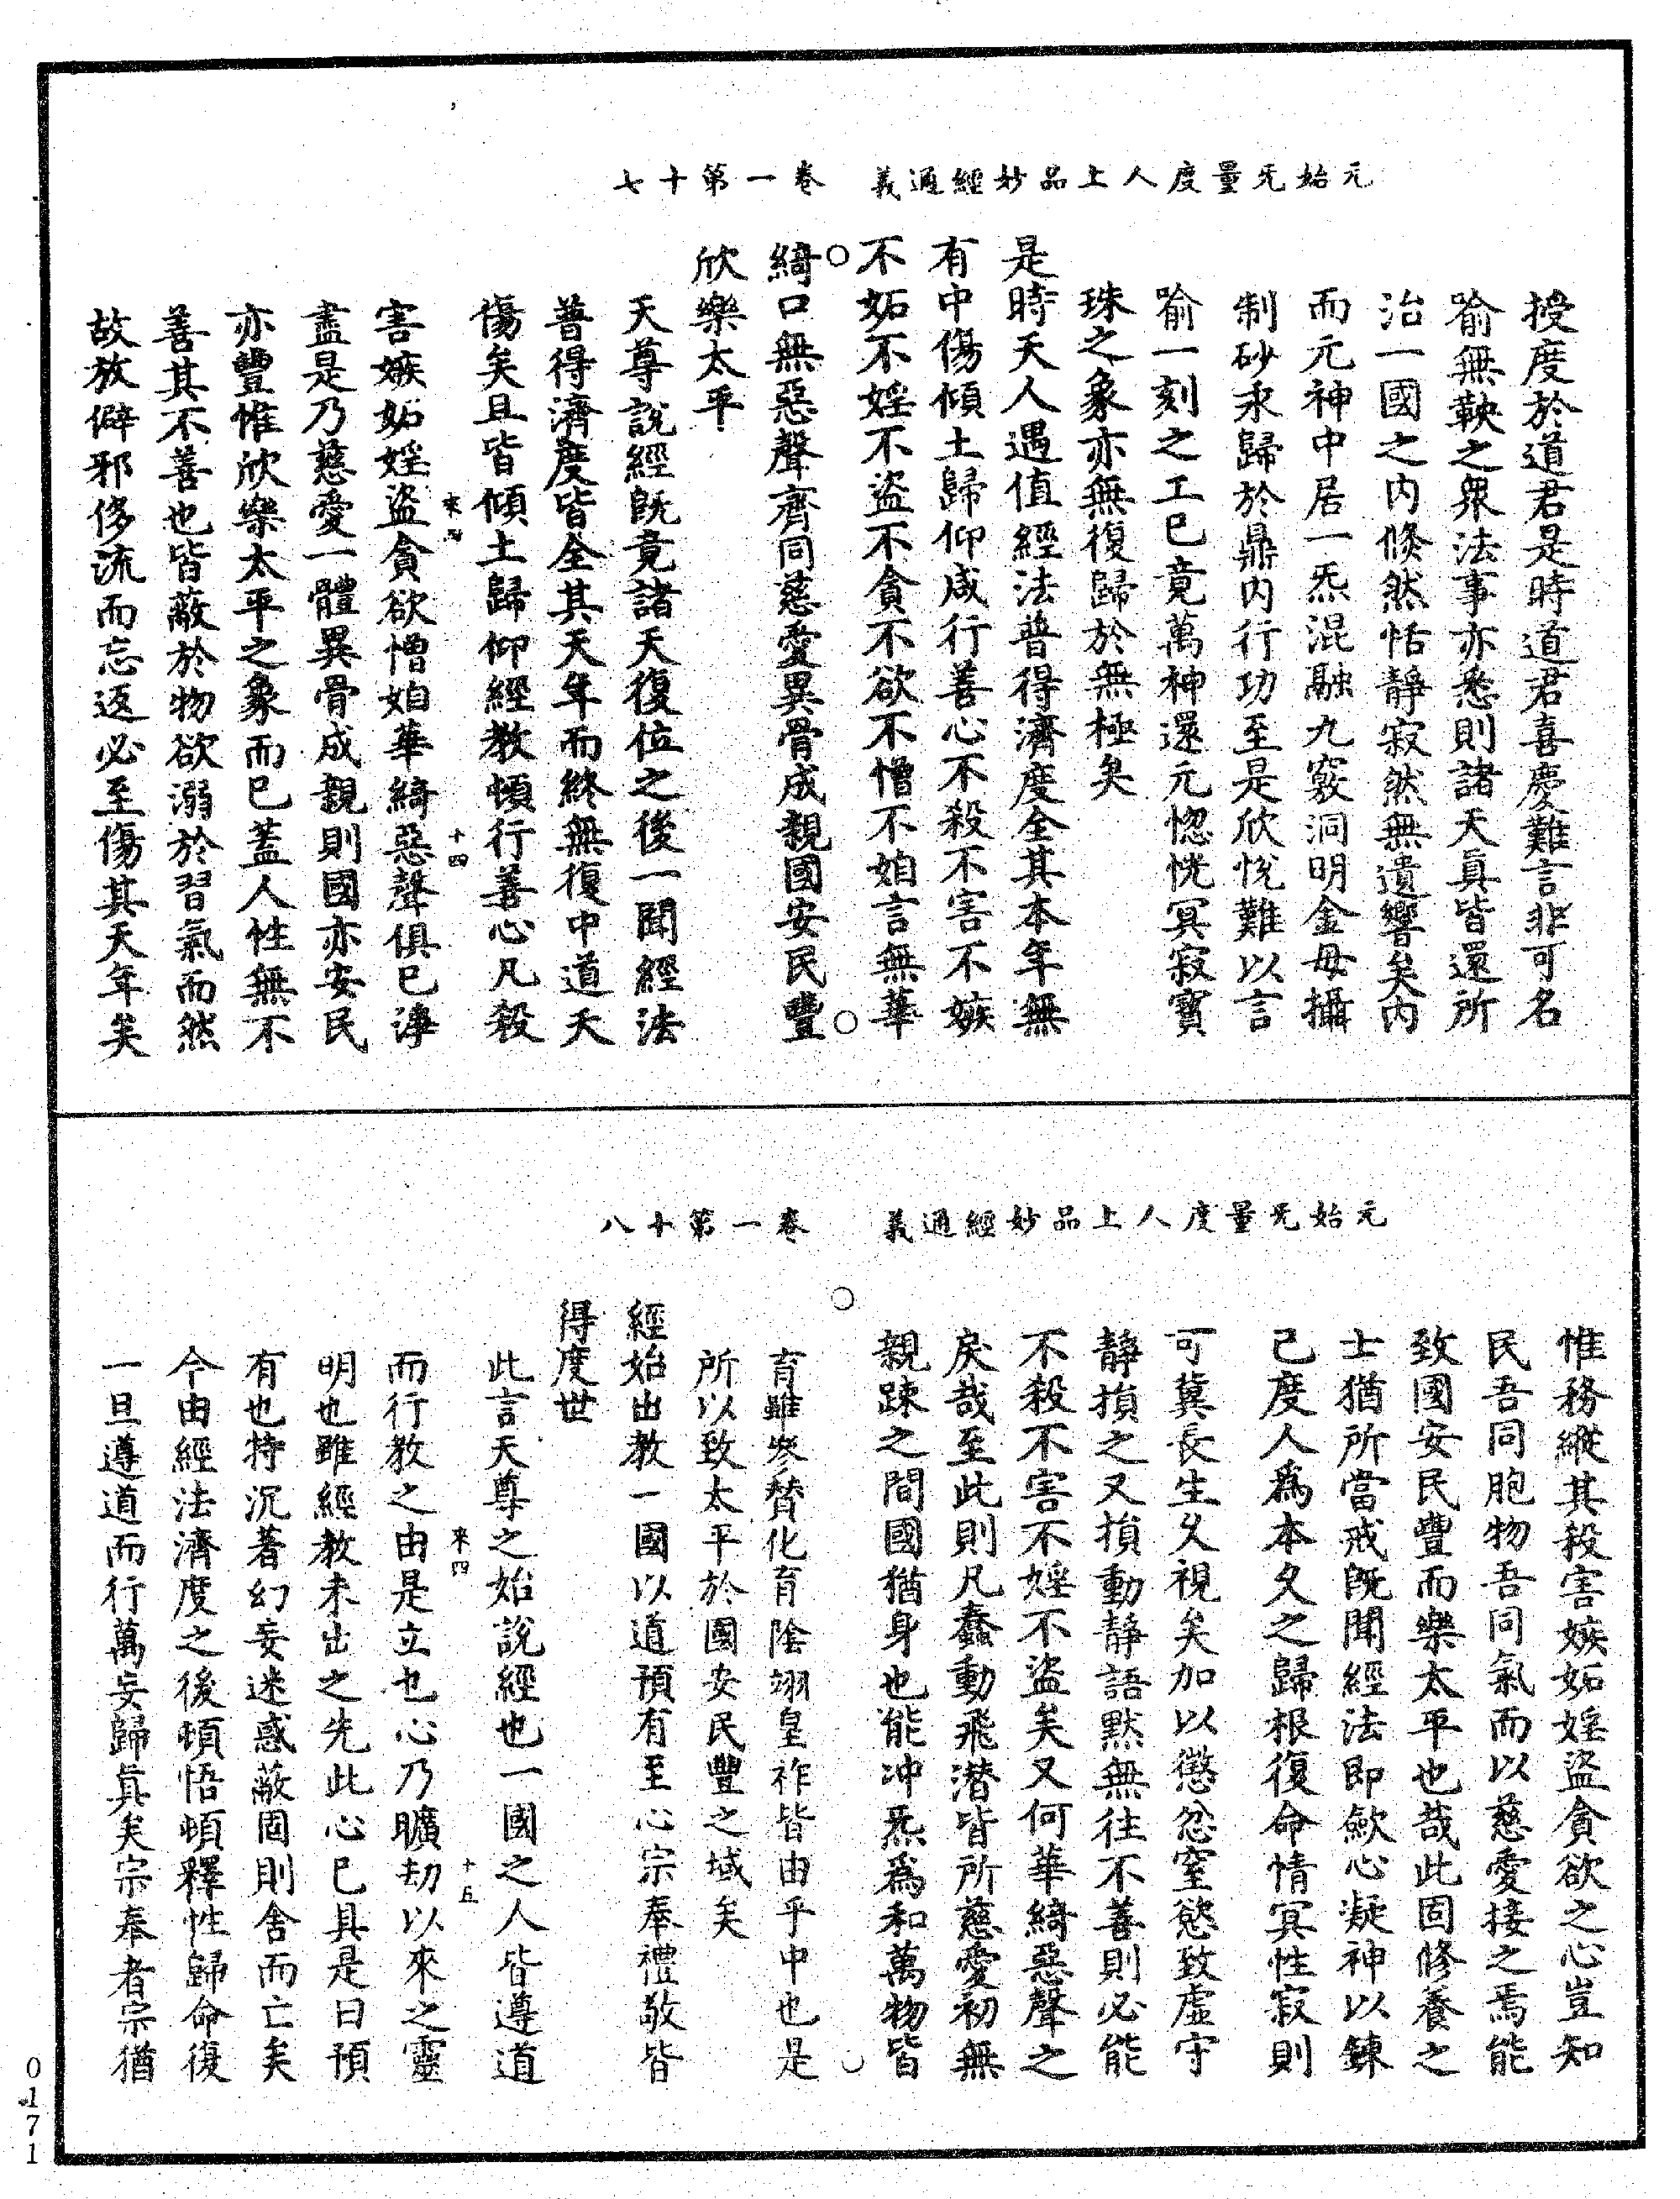 元始无量度人上品妙經通義　卷一第十七
授度於道君是時道君喜慶難言非可名
喻無鞅之衆法事亦悉則諸天眞皆還所
治一國之內倏然恬靜寂然無遺響矣內
而元神中居一炁混融九竅洞明金母攝
制砂汞歸於鼎內行功至是欣悅難以言
喻一刻之工已竟萬神還元惚恍冥寂寶
珠之象亦無復歸於無極矣
是時天人遇值經法普得濟度全其本年無
有中傷傾土歸仰咸行善心不殺不害不嫉
不妬不婬不盜不貪不欲不憎不妒言無華
綺口無惡聲齊同慈愛異骨成親國安民豐
欣樂太平
天尊說經旣竟諸天復位之後一聞經法
普得濟度皆全其天年而終無復中道夭
傷矣且皆傾土歸仰經教頓行善心凡殺
害嫉妬婬盜貪欲憎妒華綺惡聲俱已淨
來四　十四
盡是乃慈愛一體異骨成親則國亦安民
亦豐惟欣樂太平之象而已蓋人性無不
善其不善也皆蔽於物欲溺於習氣而然
故放僻邪侈流而忘返必至傷其天年矣
元始无量度人上品妙經通義　卷一第十八
惟務縱其殺害嫉妬婬盜貪欲之心豈知
民吾同胞物吾同氣而以慈愛接之焉能
致國安民豐而樂太平也哉此固修養之
士猶所當戒旣聞經法即歛心凝神以鍊
己度人爲本久之歸根復命情冥性寂則
可冀長生久視矣加以懲忿窒慾致虛守
靜損之又損動靜語默無往不善則必能
不殺不害不婬不盜矣又何華綺惡聲之
戾哉至此則凡蠢動飛潛皆所慈愛初無
親踈之間國猶身也能冲炁爲和萬物皆
育雖參賛化育隂翊皇祚皆由乎中也是
所以致太平於國安民豐之域矣
經始出教一國以道預有至心宗奉禮敬皆
得度世
此言天尊之始說經也一國之人皆遵道
而行教之由是立也心乃曠劫以來之靈
來四　十五
明也雖經教未出之先此心已具是曰預
有也特沉著幻妄迷惑蔽固則舍而亡矣
今由經法濟度之後頓悟頓釋性歸命復
一旦遵道而行萬妄歸眞矣宗奉者宗猶
0171